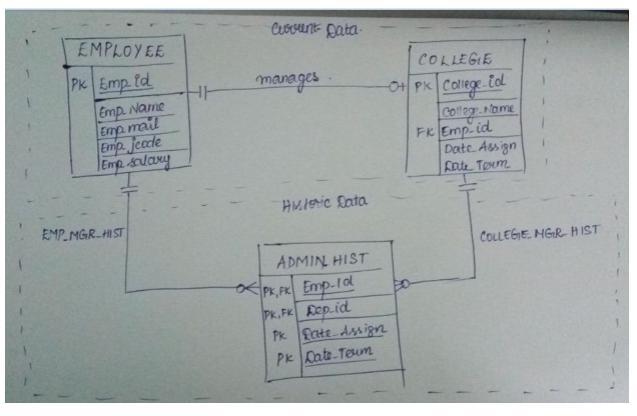 Current Data.
EMPLOYEE
PK Emp_id
Emp_Name
Emp_mail
Emp_jcode
Emp_salary
manages.
COLLEGE
PK College_id
College_Name
FK Emp_id
Date_Assign
Date_Term
Historic Data
EMP_MGR_HIST
COLLEGE_MGR_HIST
ADMIN_HIST
PK,FK Emp_Id
PK,FK Dep_id
PK Date_Assign
PK Date_Term